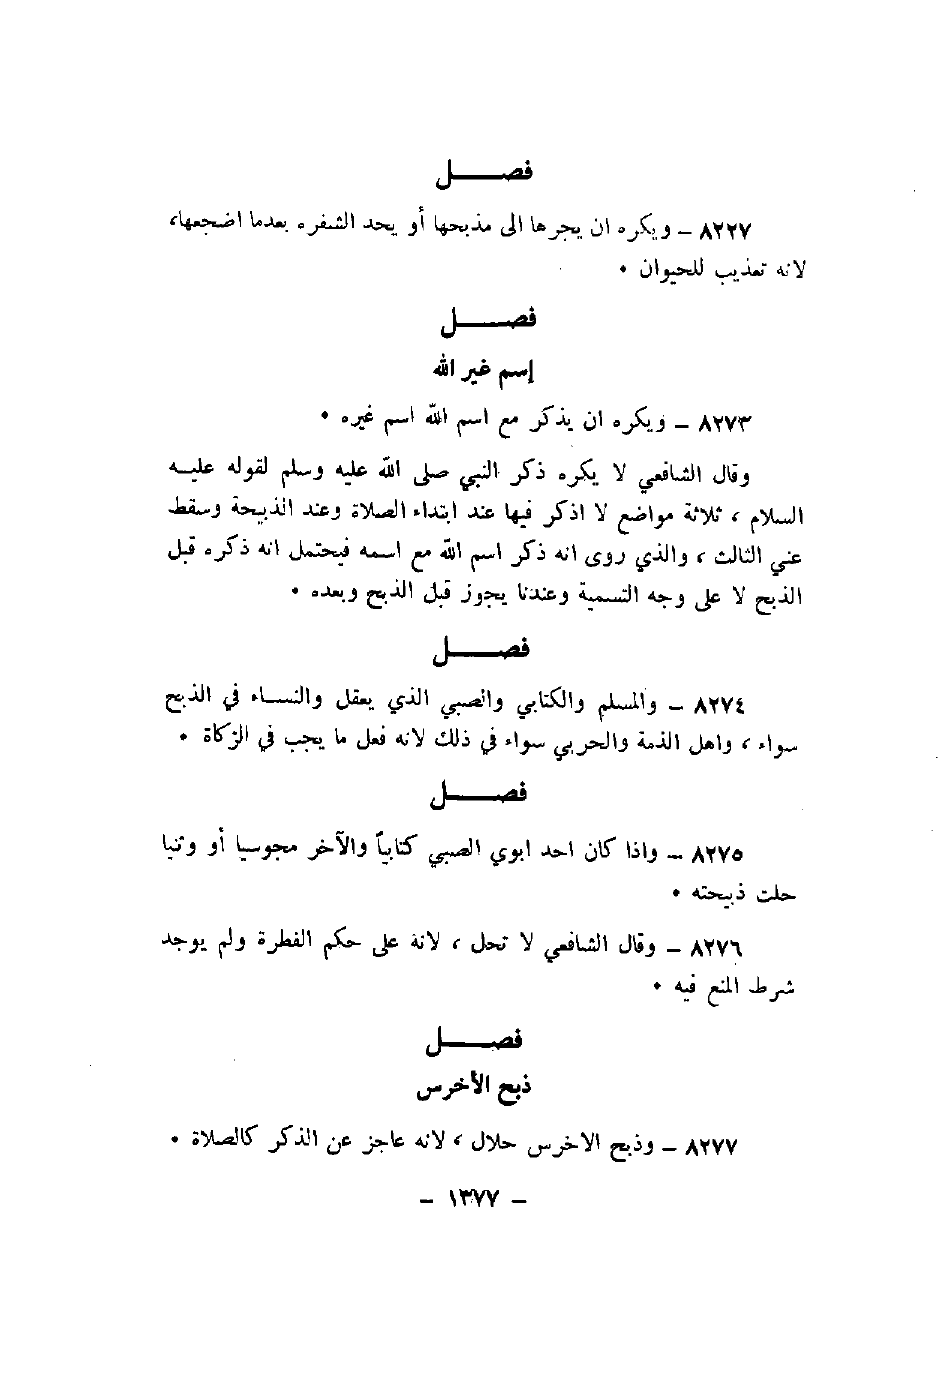 فصــــل
٨٢٢٧ – ويكره ان يجرها الى مذبحها أو يحد الشفره بعدما اضجعها،
لانه تعذيب للحيوان •
فصــــل
إسم غير الله
٨٢٧٣ – ويكره ان يذكر مع اسم الله اسم غيره •
وقال الشافعي لا يكره ذكر النبي صلى الله عليه وسلم لقوله عليــه
السلام ، ثلاثة مواضع لا اذكر فيها عند ابتداء الصلاة وعند الذبيحة وسقط
عني الثالث ، والذي روى انه ذكر اسم الله مع اسمه فيحتمل انه ذكره قبل
الذبح لا على وجه التسمية وعندنا يجوز قبل الذبح وبعده •
فصــــل
٨٢٧٤ – والمسلم والكتابي والصبي الذي يعقل والنســاء في الذبح
سواء ، واهل الذمة والحربي سواء في ذلك لانه فعل ما يجب في الزكاة •
فصــــل
٨٢٧٥ – واذا كان احد ابوي الصبي كتابياً والآخر مجوسيا أو وثنيا
حلت ذبيحته •
٨٢٧٦ – وقال الشافعي لا تحل ، لانة على حكم الفطرة ولم يوجد
شرط المنع فيه •
فصــــل
ذبح الأخرس
٨٢٧٧ – وذبح الاخرس حلال ، لانه عاجز عن الذكر كالصلاة •
– ١٣٧٧ –